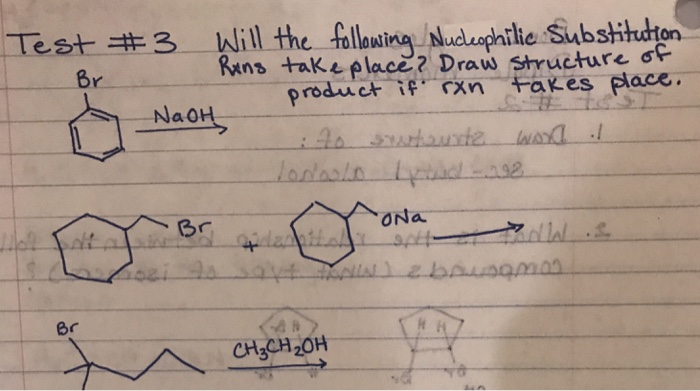 Test #3 Will the following Nucleophilic Substitution
Rxns take place? Draw structure of
product if rxn takes place.
Br
NaOH
Br + ONa
Br
CH₃CH₂OH